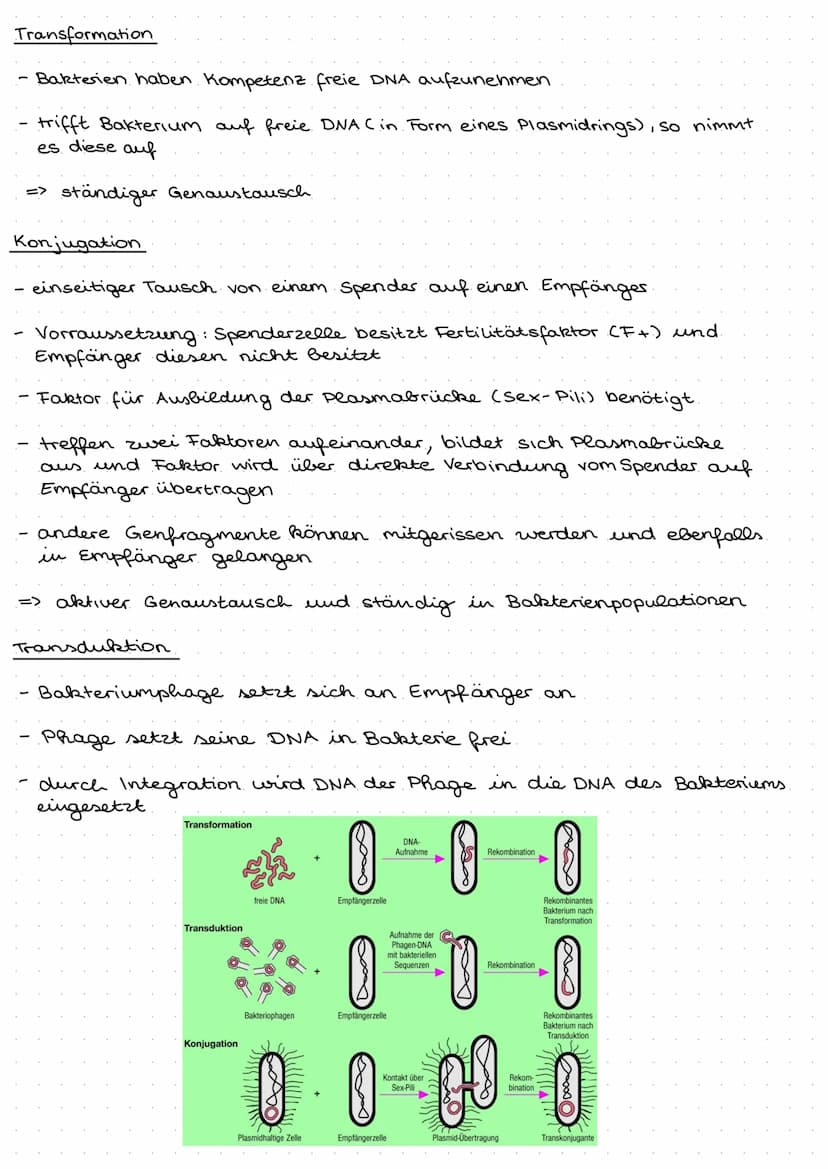 Transformation
- Bakterien haben Kompetenz freie DNA aufzunehmen
- trifft Bakterium auf freie DNA (in Form eines Plasmidrings), so nimmt
es diese auf
=> ständiger Genaustausch
Konjugation
- einseitiger Tausch von einem Spender auf einen Empfänger
- Vorraussetzung: Spenderzelle besitzt Fertilitätsfaktor (F+) und
Empfänger diesen nicht besitzt
- Faktor für Ausbildung der Plasmabrücke (Sex-Pili) benötigt
- treffen zwei Faktoren aufeinander, bildet sich Plasmabrücke
aus und Faktor wird über direkte Verbindung vom Spender auf
Empfänger übertragen
- andere Genfragmente können mitgerissen werden und ebenfalls
in Empfänger gelangen
=> aktiver Genaustausch und ständig in Bakterienpopulationen
Transduktion
- Bakteriumphage setzt sich an Empfänger an
- Phage setzt seine DNA in Bakterie frei
- durch Integration wird DNA der Phage in die DNA des Bakteriums
eingesetzt
Transformation
+
DNA-
Aufnahme
Rekombination
freie DNA
Empfängerzelle
Rekombinantes
Bakterium nach
Transformation
Transduktion
+
Aufnahme der
Phagen-DNA
mit bakteriellen
Sequenzen
Rekombination
Bakteriophagen
Empfängerzelle
Rekombinantes
Bakterium nach
Transduktion
Konjugation
+
Kontakt über
Sex-Pili
Rekom-
bination
Plasmidhaltige Zelle
Empfängerzelle
Plasmid-Übertragung
Transkonjugante